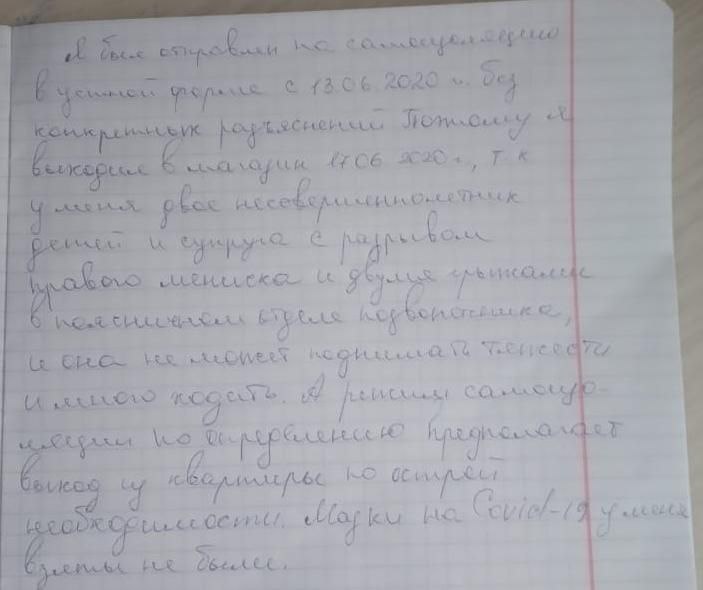 Я был отправлен на самоизоляцию
в устной форме с 13.06.2020 г. без
конкретных разъяснений Поэтому я
выходил в магазин 17.06.2020 г., т.к
у меня двое несовершеннолетних
детей и супруга с разрывом
правого мениска и двумя грыжами
в поясничном отделе позвоночника,
и она не может поднимать тяжести
и много ходить. А режим самоизо-
ляции по определению предполагает
выход из квартиры по острой
необходимости. Мазки на Covid-19 у меня
взяты не были.